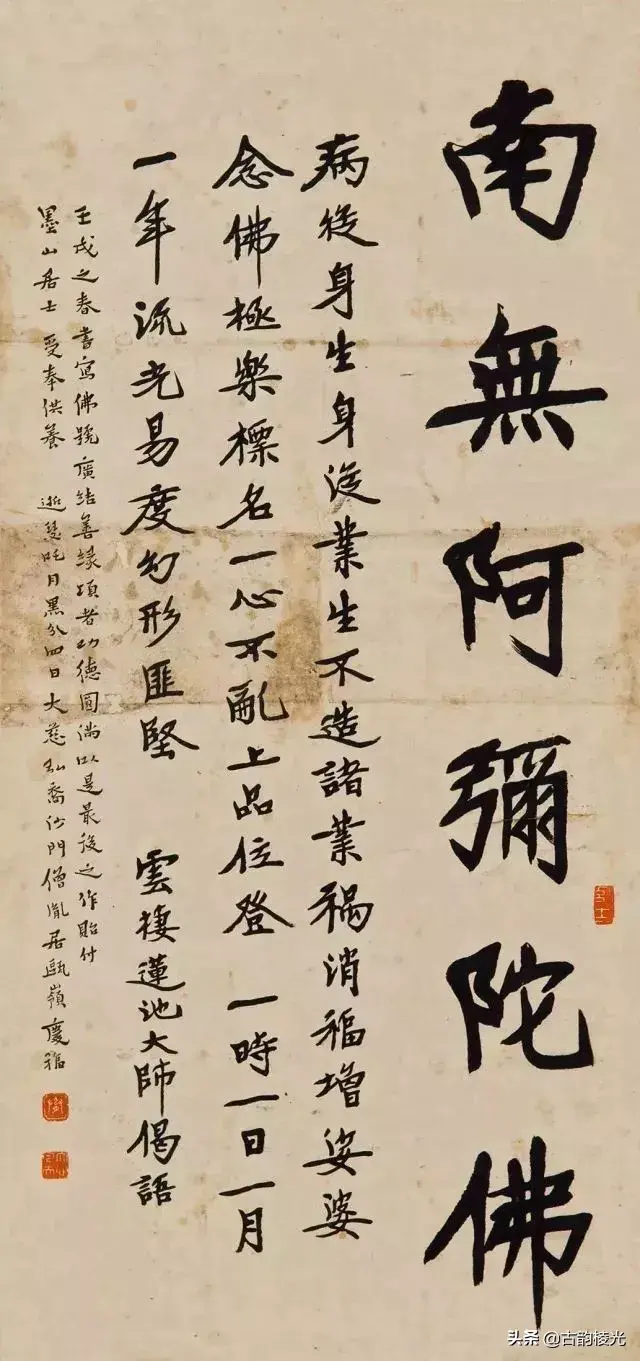 南無阿彌陀佛
病從身生身從業生不造諸業禍消福增娑婆
念佛極樂標名一心不亂上品位登 一時一日一月
一年流光易度幻形匪堅 雲棲蓮池大師偈語
壬戌之春書寫佛號廣結善緣頃者功德圓滿以是最後之作貽付
墨山居士 受奉供養 逝瑟吒月黑分四日大慈弘裔沙門僧胤居甌嶺慶福
头条 @古韵棱光